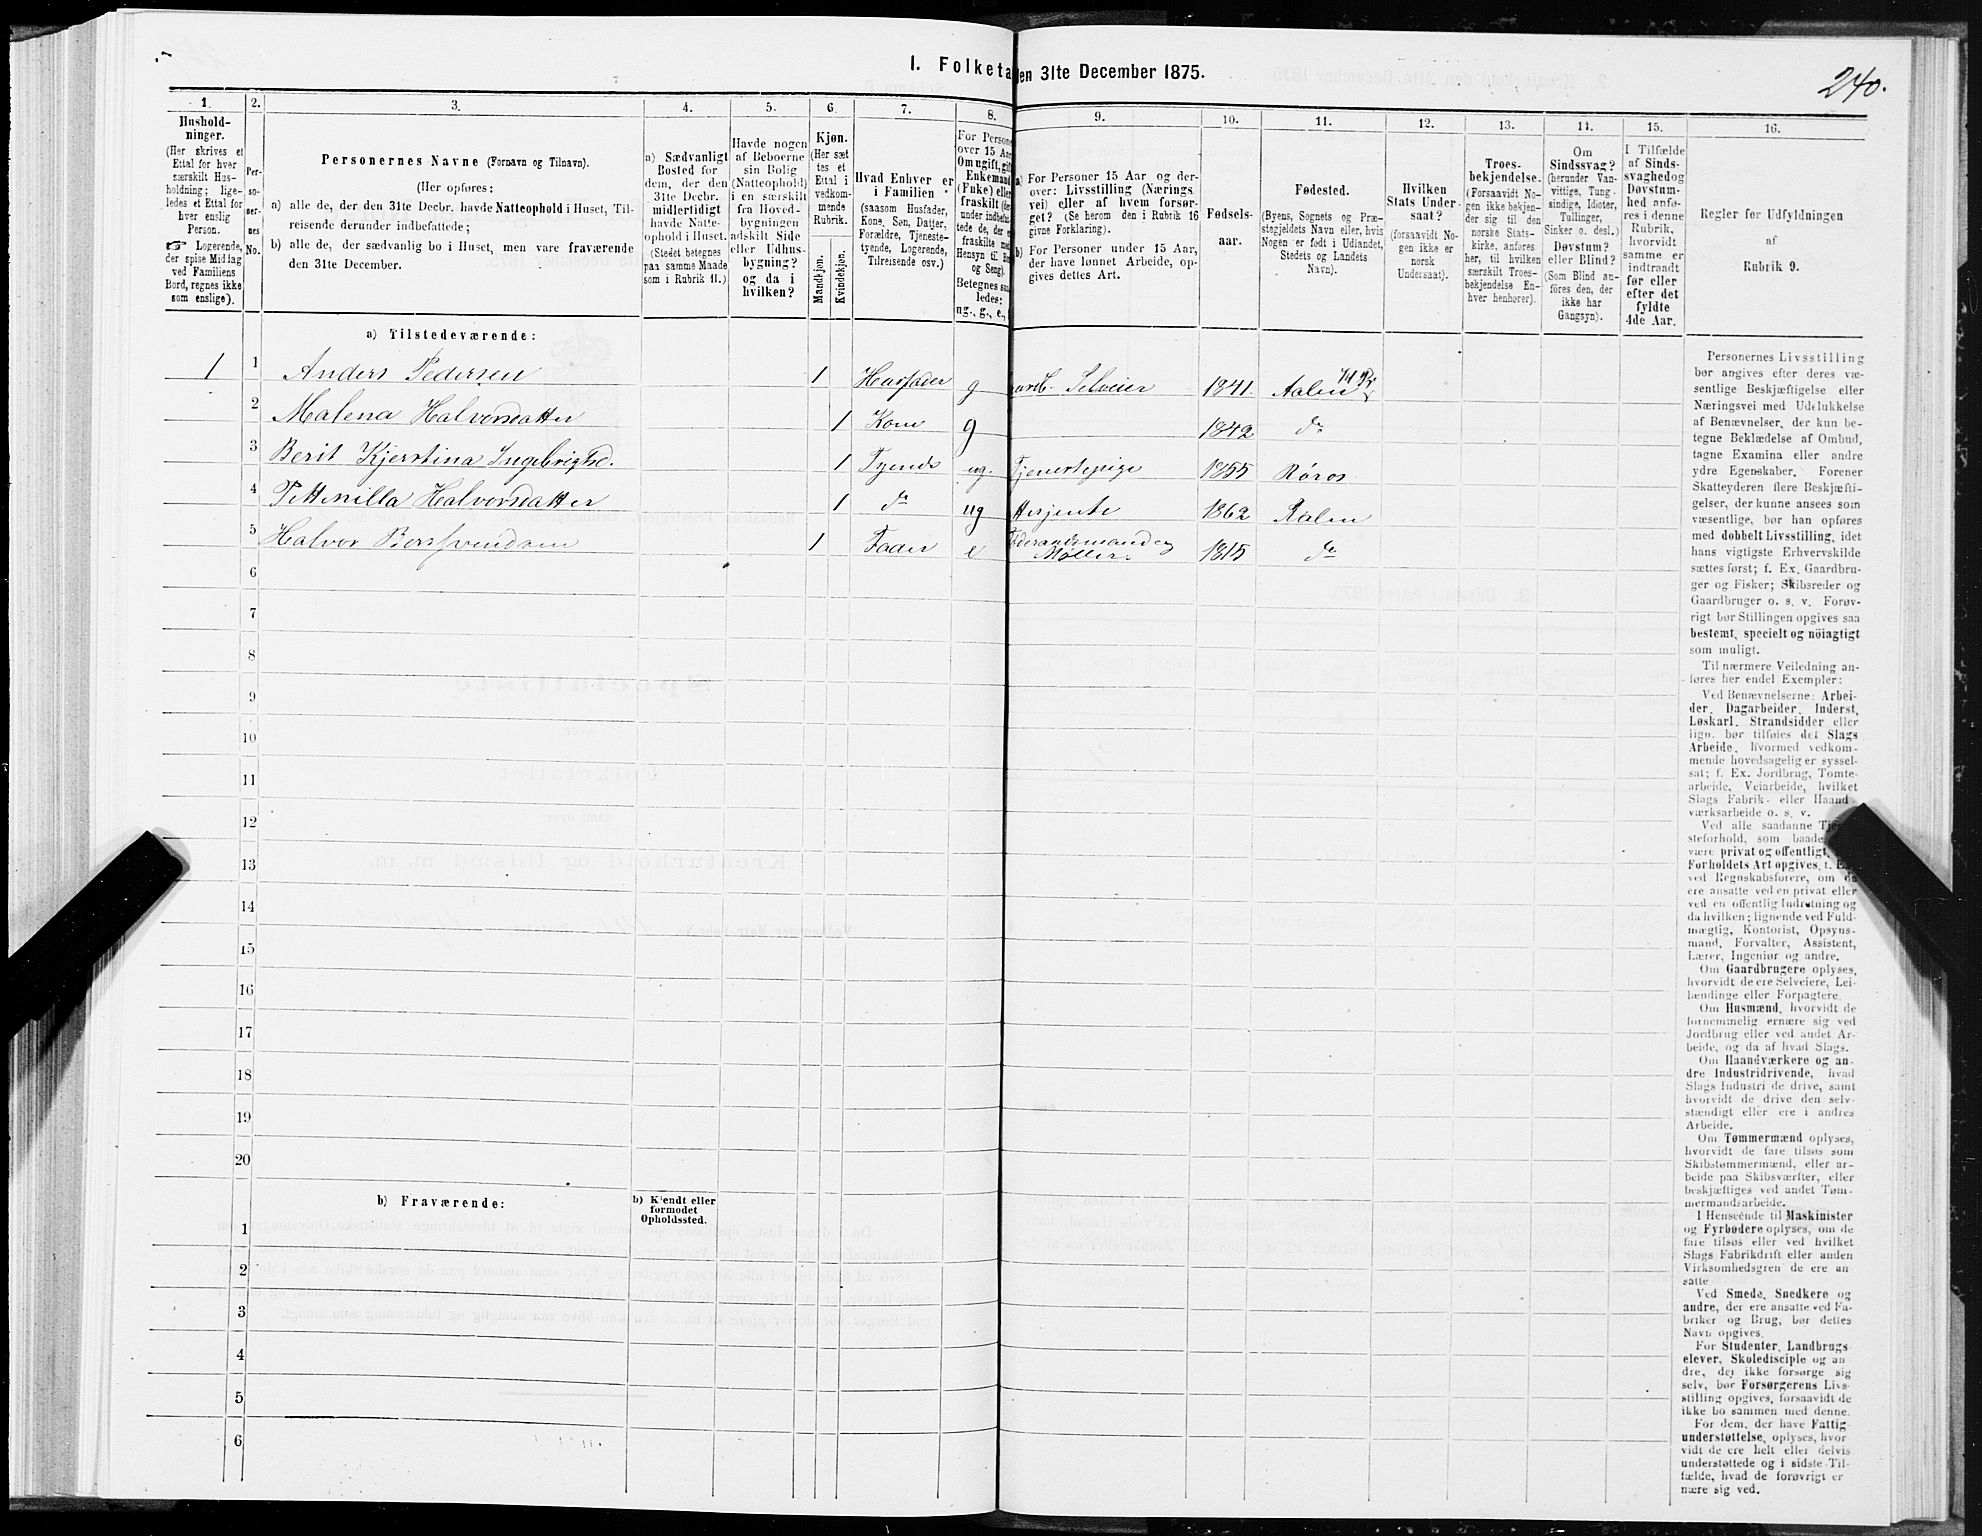 1. Folketa
den 31te December 1875.
240.
1.
2.
3.
4.
5.
6.
7.
8.
9.
10.
11.
12.
13.
14.
15.
16.
Hushold-
ninger.
(Her skrives et
Ettal for hver
særskilt Hus-
holdning; lige-
ledes et Ettal for
hver enslig
Person.
☞ Logerende,
der spise Middag
ved Familiens
Bord, regnes ikke
som enslige).
Per-
so-
ner-
nes
No.
Personernes Navne (Fornavn og Tilnavn).
(Her opføres:
a) alle de, der den 31te Decbr. havde Natteophold i Huset, Til-
reisende derunder indbefattede;
b) alle de, der sædvanlig bo i Huset, men vare fraværende
den 31te December.
a) Sædvanligt
Bosted for
dem, der den
31te Decbr.
midlertidigt
havde Natte-
ophold i Huset.
(Stedet betegnes
paa samme Maade
som i Rubrik 11.)
Havde nogen
af Beboerne
sin Bolig
(Natteophold)
i en særskilt
fra Hoved-
bygningen
adskilt Side
eller Udhus-
bygning?
og da i
hvilken?
Kjøn.
(Her sæt
tes et
Ettal i
vedkom-
mende
Rubrik.
Mandkjøn.
Kvindekjøn.
Hvad Enhver er
i Familien
(saasom Husfader,
Kone, Søn, Datter,
Forældre, Tjeneste-
tyende, Logerende,
Tilreisende osv.)
For Persone
over 15 Aar
Om ugift, gift
Enkemand
(Enke) eller
fraskilt (der
under indbefat
tede de, der er
fraskilte med
Hensyn til Bor
og Seng).
Betegnes saa
ledes:
ug., g., e.,
a) For Personer 15 Aar og der-
over: Livsstilling (Nærings
vei) eller af hvem forsør-
get? (Se herom den i Rubrik 16
givne Forklaring).
b) For Personer under 15 Aar,
der have lønnet Arbeide, op-
gives dettes Art.
Fødsels-
aar.
Fødested.
(Byens, Sognets og Præ-
stegjeldets Navn eller, hvis
Nogen er født i Udlandet,
Stedets og Landets
Navn).
Hvilken
Stats Under-
saat?
(forsaavidt No-
gen ikke er
norsk
Undersaat).
Troes-
bekjendelse.
(Forsaavidt No-
gen ikke bekjen-
der sig til den
norske Stats-
kirke, anføres
her, til hvilken
særskilt Troes-
bekjendelse En-
hver henhører).
Om
Sindssvag?
(herunder Van-
vittige, Tung-
sindige, Idioter,
Tullinger,
Sinker o. desl.)
Døvstum?
eller Blind?
(Som Blind an-
føres den, der
ikke har
Gangsyn).
I Tilfælde
af Sinds-
svaghed og
Døvstum-
hed anfø-
res i denne
Rubrik,
hvorvidt
samme er
indtraadt
før eller
efter det
fyldte
4de Aar.
Regler for Udfyldningen
af
Rubrik 9.
a) Tilstedeværende:
1 1 Anders Pedersen 1 Husfader g Selveier 1841. Aalen
2 Malena Halvorsdatter 1 Kone g 1842 do
3 Berit Kjerstina Ingebrigtsd. 1 Tyende ug. Tjenestepige 1855 Røros
4 Pettenilla Halvorsdatter 1 do ug 1862 Aalen
5 Halvor Bersvendsen 1 Fader e Føderaadsmand og
Møller. 1815 do
6
7
8
9
10
11
12
13
14
15
16
17
18
19
20
b) Fraværende:
b) Kjendt eller
formodet
Opholdssted.
1
2
3
4
5
6
Personernes Livsstilling
bør angives efter deres væ-
sentlige Beskjæftigelse eller
Næringsvei med Udelukkelse
af Benævnelser, der kun be-
tegne Beklædelse af Ombud,
tagne Examina eller andre
ydre Egenskaber. Forener
Skatteyderen flere Beskjæfti-
gelser, der kunne ansees som
væsentlige, bør han opføres
med dobbelt Livsstilling, idet
hans vigtigste Erhvervskilde
sættes først; f. Ex. Gaardbru-
ger og Fisker; Skibsreder og
Gaardbruger o. s. v. Forøv-
rigt bør Stillingen opgives saa
bestemt, specielt og nöiagtigt
som muligt.
Til nærmere Veiledning an-
føres her endel Exempler:
Ved Benævnelserne: Arbei-
der, Dagarbeider, Inderst,
Løskarl, Strandsidder eller
lign. bør tilføies det Slags
Arbeide, hvormed vedkom-
mende hovedsagelig er syssel-
sat; f. Ex. Jordbrug, Tomte-
arbeide, Veiarbeide, hvilket
Slags Fabrik- eller Haand-
værksarbeide o. s. v.
Ved alle saadanne Tje
steforhold, som baade
være privat og offentligt,
Forholdets Art opgives, f. Ex.
ved Regnskabsførere, om de
ere ansatte ved en privat eller
ved en offentlig Indretning og
da hvilken; lignende ved Fuld-
mægtig, Kontorist, Opsyns-
mand, Forvalter, Assistent,
Lærer, Ingeniør og andre.
Om Gaardbrugere oplyses,
hvorvidt de ere Selveiere, Lei-
lændinge eller Forpagtere.
Om Husmænd, hvorvidt de
fornemmelig ernære sig ved
Jordbrug eller ved andet Ar-
beide, og da af hvad Slags.
Om Haandværkere og an-
dre Industridrivende, hvad
Slags Industri de drive, samt
hvorvidt de drive den selv-
stændigt eller ere i andres
Arbeide.
Om Tømmermænd oplyses,
hvorvidt de fare tilsøs som
Skibstømmermænd, eller ar-
beide paa Skibsværfter, eller
beskjæftiges ved andet Tøm-
mermandsarbeide.
I Henseende til Maskinister
og Fyrbødere oplyses, om de
fare tilsøs eller ved hvilket
Slags Fabrikdrift eller anden
Virksomhedsgren de ere an-
satte
Ved Smede, Snedkere og
andre, der ere ansatte ved Fa-
briker og Brug, bør dettes
Navn opgives.
For Studenter, Landbrugs-
elever, Skoledisciple og an
dre, der ikke forsørge sig
selv, bør Forsørgerens Livs-
stilling opgives, forsaavidt de
ikke bo sammen med denne.
For dem, der have Fattig-
understøttelse, oplyses, hvor-
vidt de ere helt eller delvis
understøttede og i sidste Til-
fælde, hvad de forøvrigt er
nære sig ved.